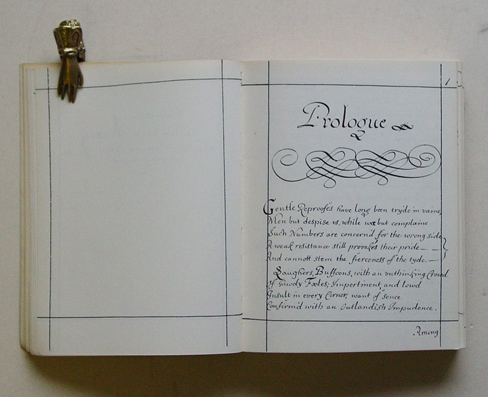 1
Prologue
Gentle Reproofes have long been tryde in vaine,
Men but despise us, while we but complaine
Such Numbers are concernd, for the wrong side
A weak resistance still provokes their pride
And cannott stem the fierceness of the tyde.
Laughers, Buffoons, with an unthinking Crowd
Of Gawdy Fooles; Impertinent, and lowd
Insult in every Corner, want of sence
Confirmd with an Outlandish Impudence.
Among